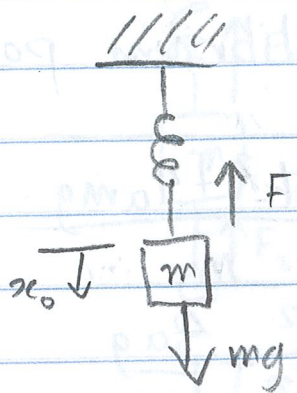 F
x₀
m
mg